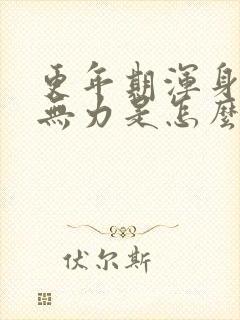 更年期渾身
無力是怎麼
伏尔斯